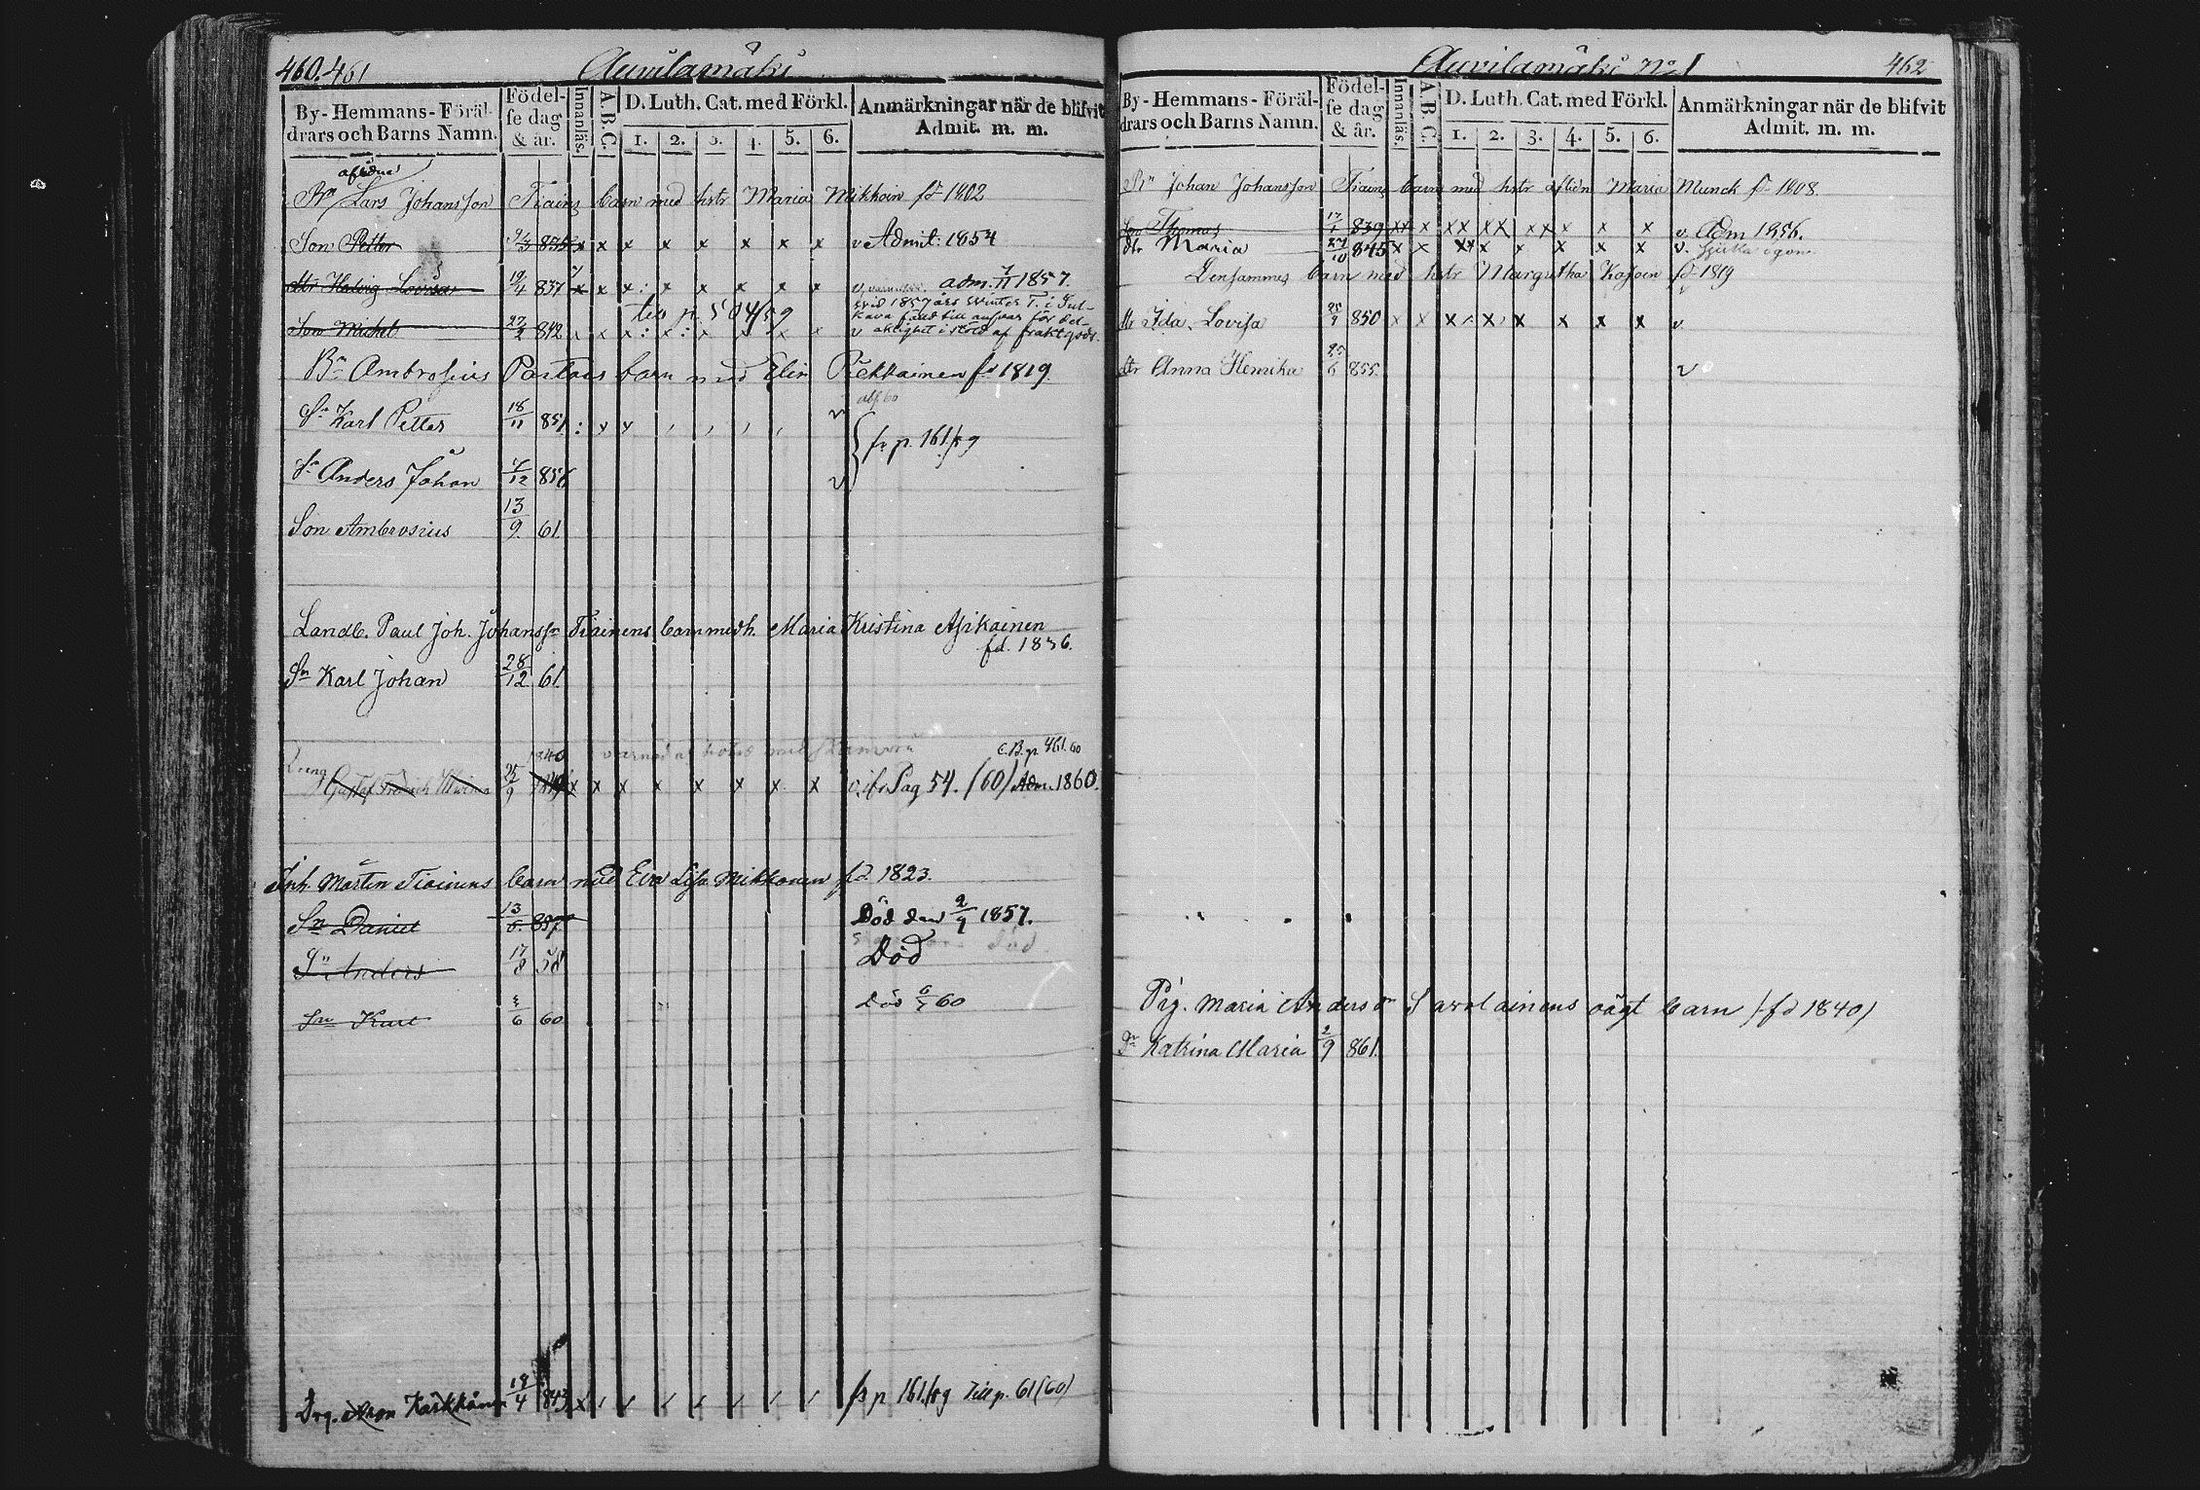 460.461 Auvilamäki
By-Hemmans-Föräl-drars och Barns Namn. Födel-se dag & år. Innanläs. A.B.C. D. Luth. Cat. med Förkl. 1. 2. 3. 4. 5. 6. Anmärkningar när de blifvit Admit. m. m.
aflidne
Bn Lars Johansson Tiains barn med hstr Maria Mikkoin fd 1802
Son Petter 835 x x x x x x x x v Admit: 1854
dtr Helvig Lovisa 19/4 837 x x x: x x x x x v adm. 1857.
vid 1857 års Winter T. i
Son Michel 27/2 842 x x x: x: x x x x v
Bn Ambrosius Partais barn med Elin fd 1819.
Sn Karl Petter 18/11 851 : x x
fr p. 161/59
Sn Anders Johan 7/12 856 v
Son Ambrosius 13/9 61.
Landb. Paul Joh. Johanss. Tiainens barn med h. Maria Kristina Asikainen
fd. 1836.
Sn Karl Johan 28/12 61.
1840 C.B. p. 461.60
Dreng Gustaf 25/9 x x x x x x x x v. fr Pag 54. (60) Adm. 1860.
Inh. Mårten Tiainens barn med Eva Lisa Mikkonen fd. 1823.
Sn Daniel 13/6 857 Död den 2/9 1857.
Sn Anders 17/8 58 Död
Sn Karl 6 60 Död 60
Drg. Aron Karkkänen 19/4 843 x fr p 161/59 Till p. 61 (60)
Auvilamäki No 1 462
By-Hemmans-Föräl-drars och Barns Namn. Födel-se dag & år. Innanläs. A.B.C. D. Luth. Cat. med Förkl. 1. 2. 3. 4. 5. 6. Anmärkningar när de blifvit Admit. m. m.
Bn Johan Johansson Tiains barn med hstr aflidn Maria Munck fd 1808.
Son Thomas 17/1 839 xx x xx xx xx x x x v. Adm 1856.
dtr Maria 27/10 845 x x xx x x x x x v.
Densammes barn med hstr Margretha Kasoin fd 1819
dtr Ida Lovisa 25/9 850 x x x x x x x x v
dtr Anna Henrika 25/6 855. v
Pig. Maria Andersdr Savolainens oägt barn (fd 1840)
Dr Katrina Maria 2/9 861.